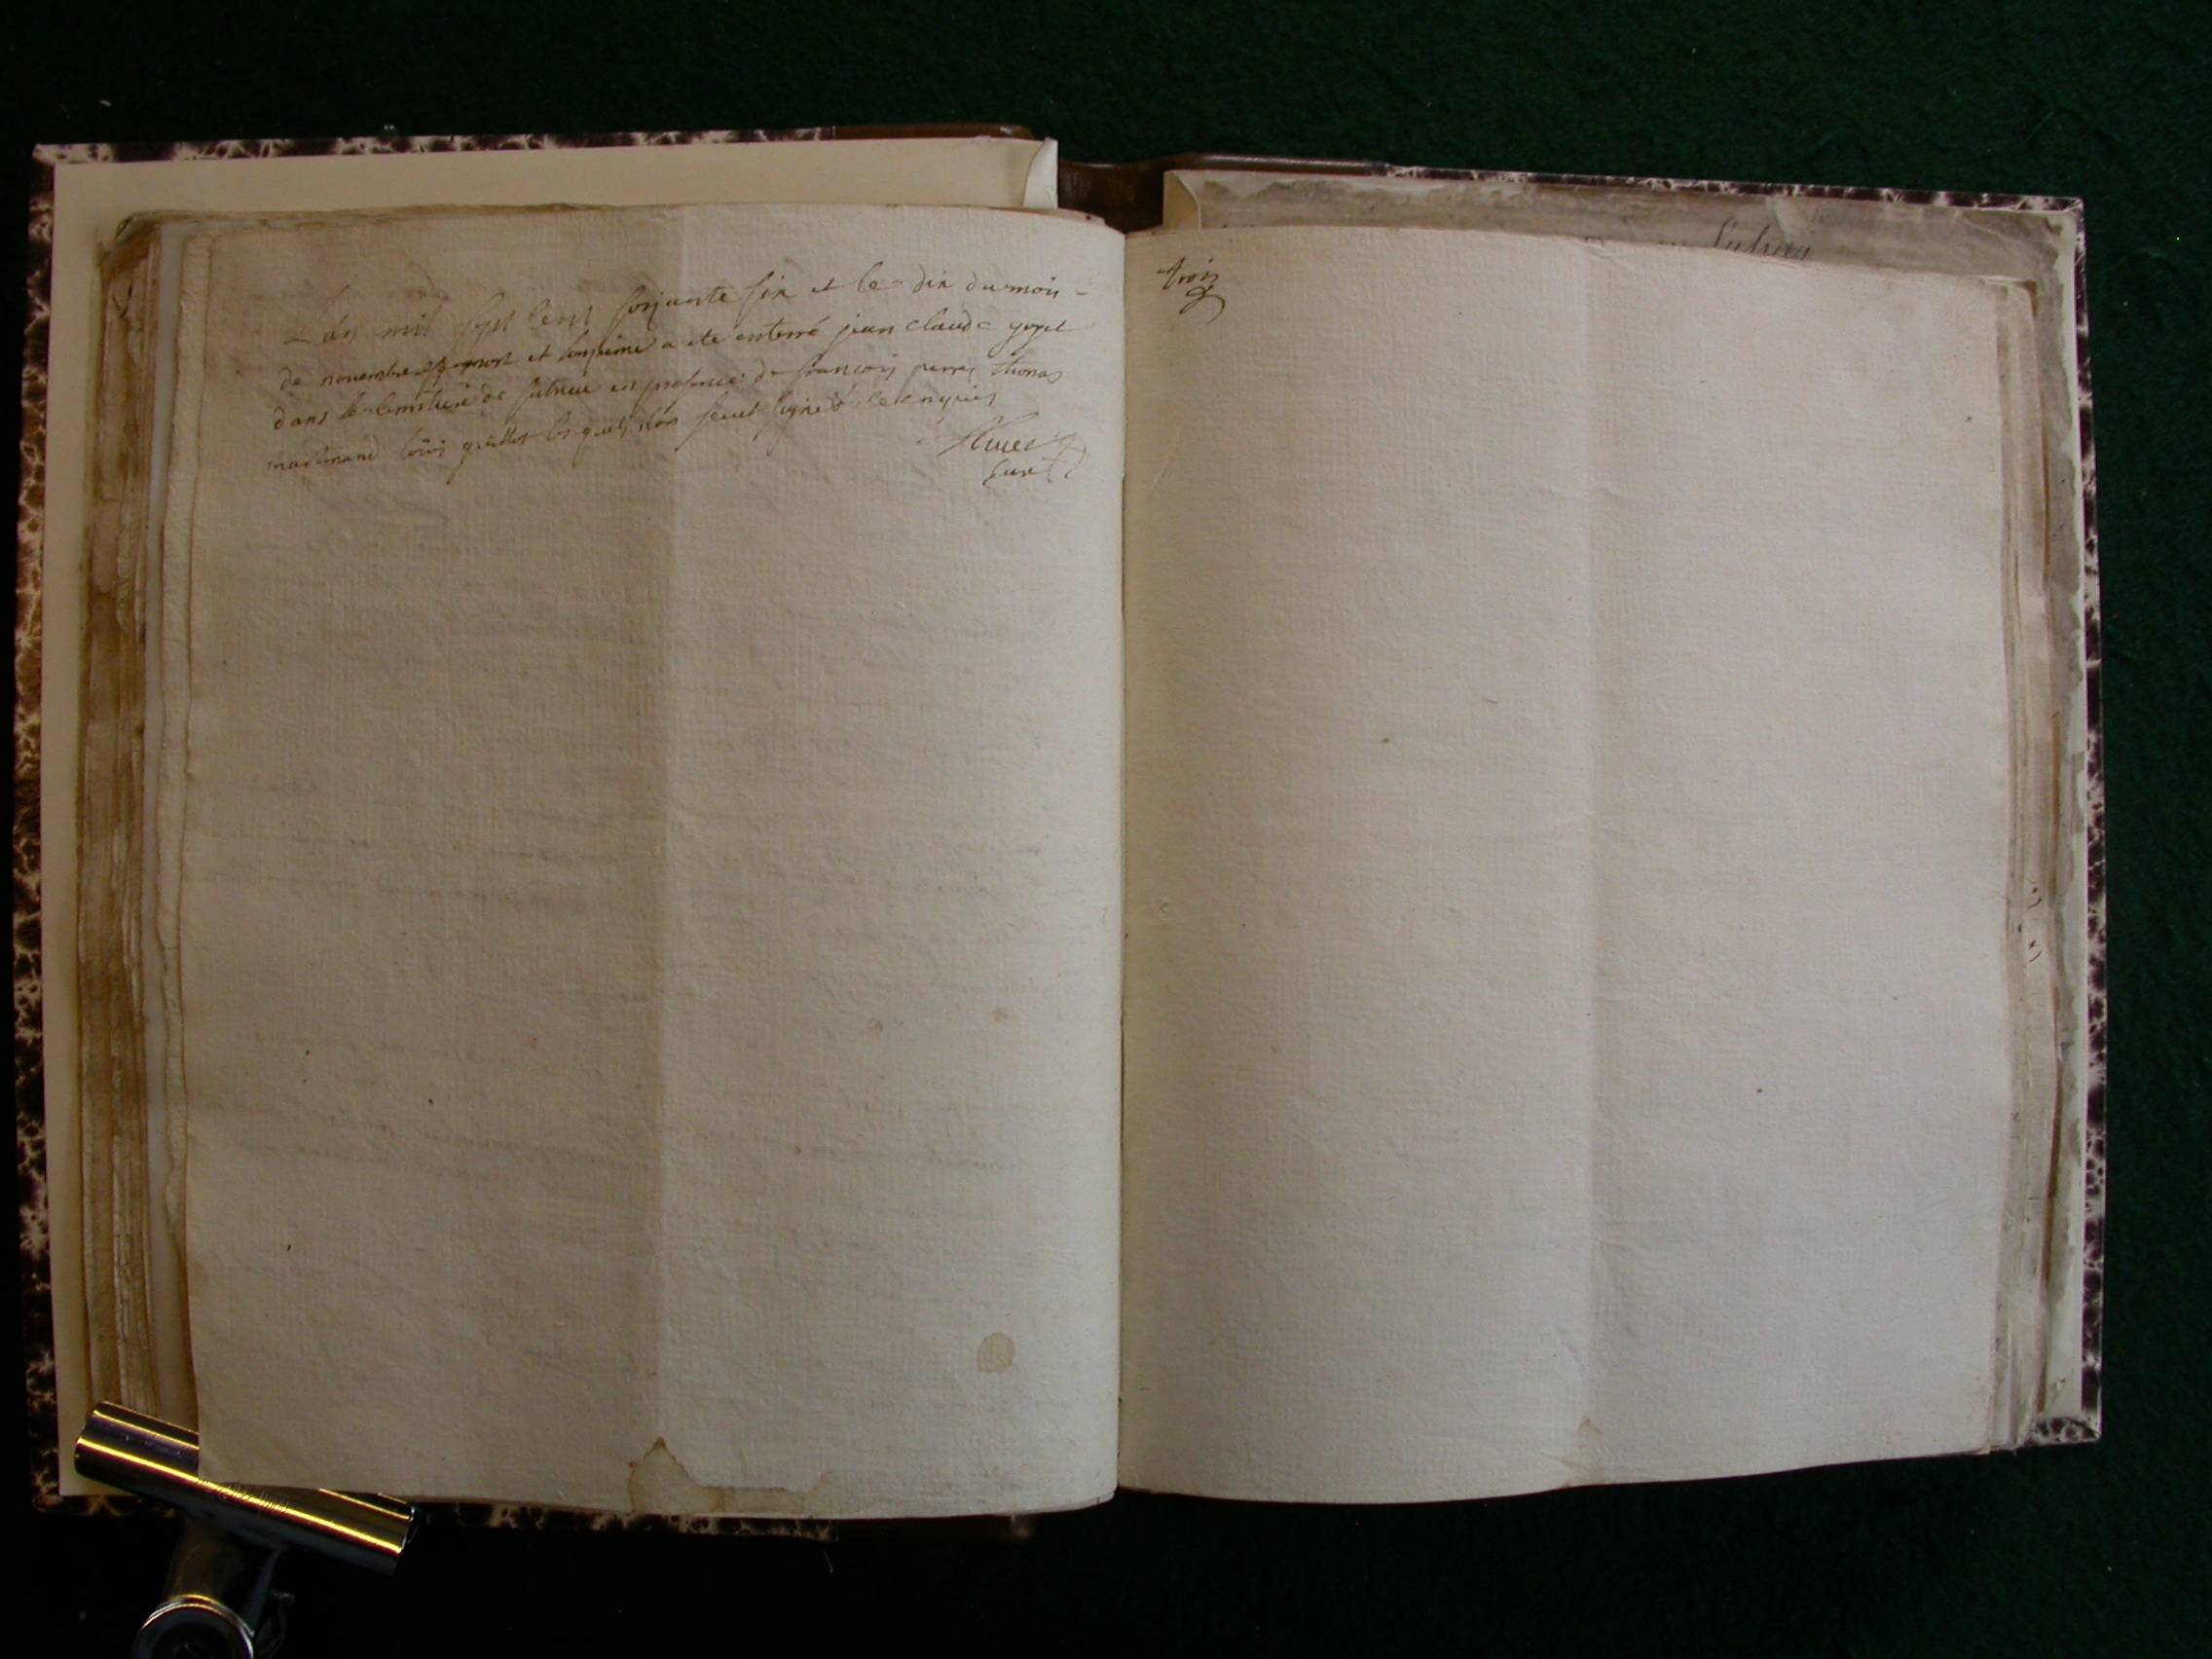 L'an mil sept cens soisante six et le dix du mois
de novembre est mort et a ete enterré jean claude goyet
dans le cimitiere de en presence de francois pierre thomas
martinand loüis guillot lesquels n'on sceut signé de ce enquis
curé
trois